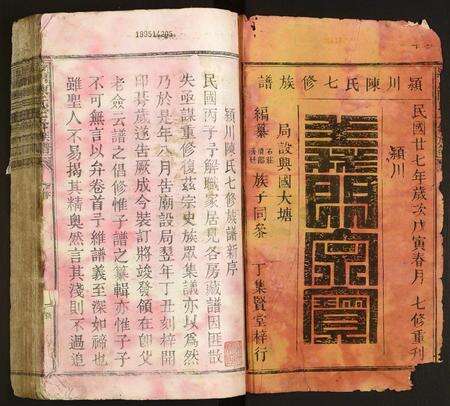 潁川陳氏七修族譜
民國廿七年歲次戊寅春月 七修重刊
潁川
局設興國大塘
編纂 族子同參 丁集賢堂梓行
潁川陳氏七修族譜新序
民國丙子予解職家居見各房藏譜因匪散
失亟謀重修復茲宗史族眾集議亦以為然
乃於是年八月告廟設局翌年丁丑刻梓開
印朞歲遂告厥成今裝訂將竣發領在即父
老僉云譜之倡修惟子譜之纂輯亦惟子子
不可無言以弁卷首予維譜義至深如禘也
雖聖人不易揭其精奧然言其淺則不過追
193514205